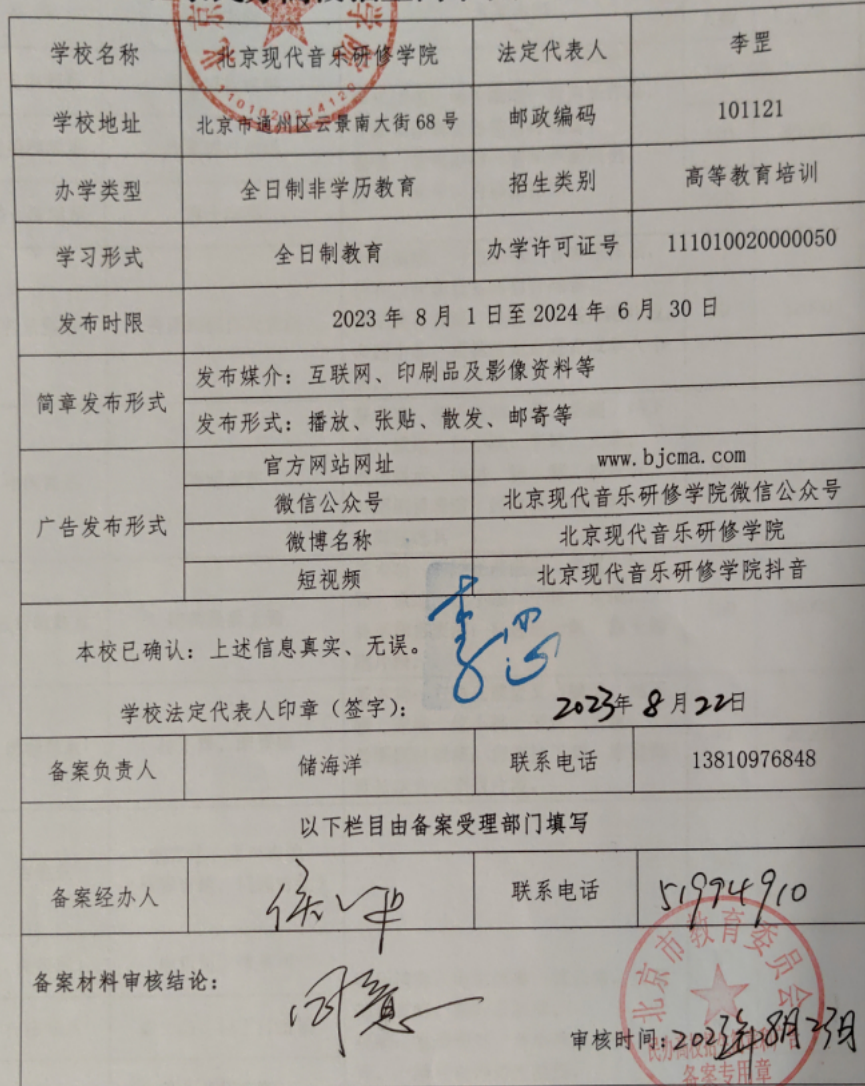 学校名称 北京现代音乐研修学院 法定代表人 李罡
1101020214120
学校地址 北京市通州区云景南大街68号 邮政编码 101121
办学类型 全日制非学历教育 招生类别 高等教育培训
学习形式 全日制教育 办学许可证号 111010020000050
发布时限 2023年8月1日至2024年6月30日
简章发布形式 发布媒介：互联网、印刷品及影像资料等
发布形式：播放、张贴、散发、邮寄等
广告发布形式 官方网站网址 www.bjcma.com
微信公众号 北京现代音乐研修学院微信公众号
微博名称 北京现代音乐研修学院
短视频 北京现代音乐研修学院抖音
本校已确认：上述信息真实、无误。 李罡
学校法定代表人印章（签字）： 2023年8月22日
备案负责人 储海洋 联系电话 13810976848
以下栏目由备案受理部门填写
备案经办人 联系电话 51994910
北京市教育委员会
备案材料审核结论： 同意
审核时间：2023年8月23日
备案专用章